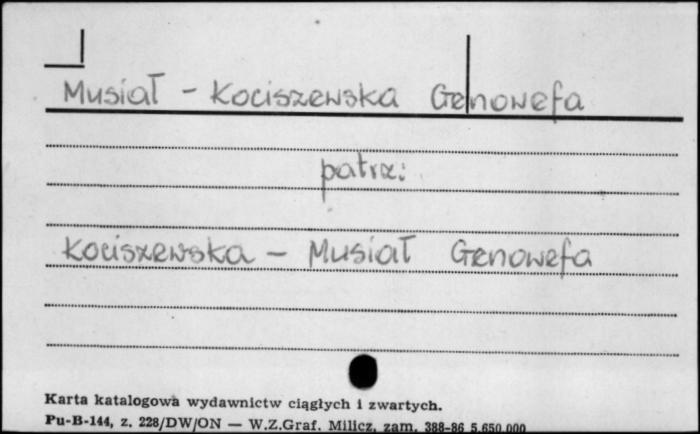 Musiał - Kociszewska Genowefa
patrz:
Kociszewska - Musiał Genowefa
Karta katalogowa wydawnictw ciągłych i zwartych.
Pu-B-144, z. 228/DW/ON — W.Z.Graf. Milicz, zam. 388-86 5.650.000